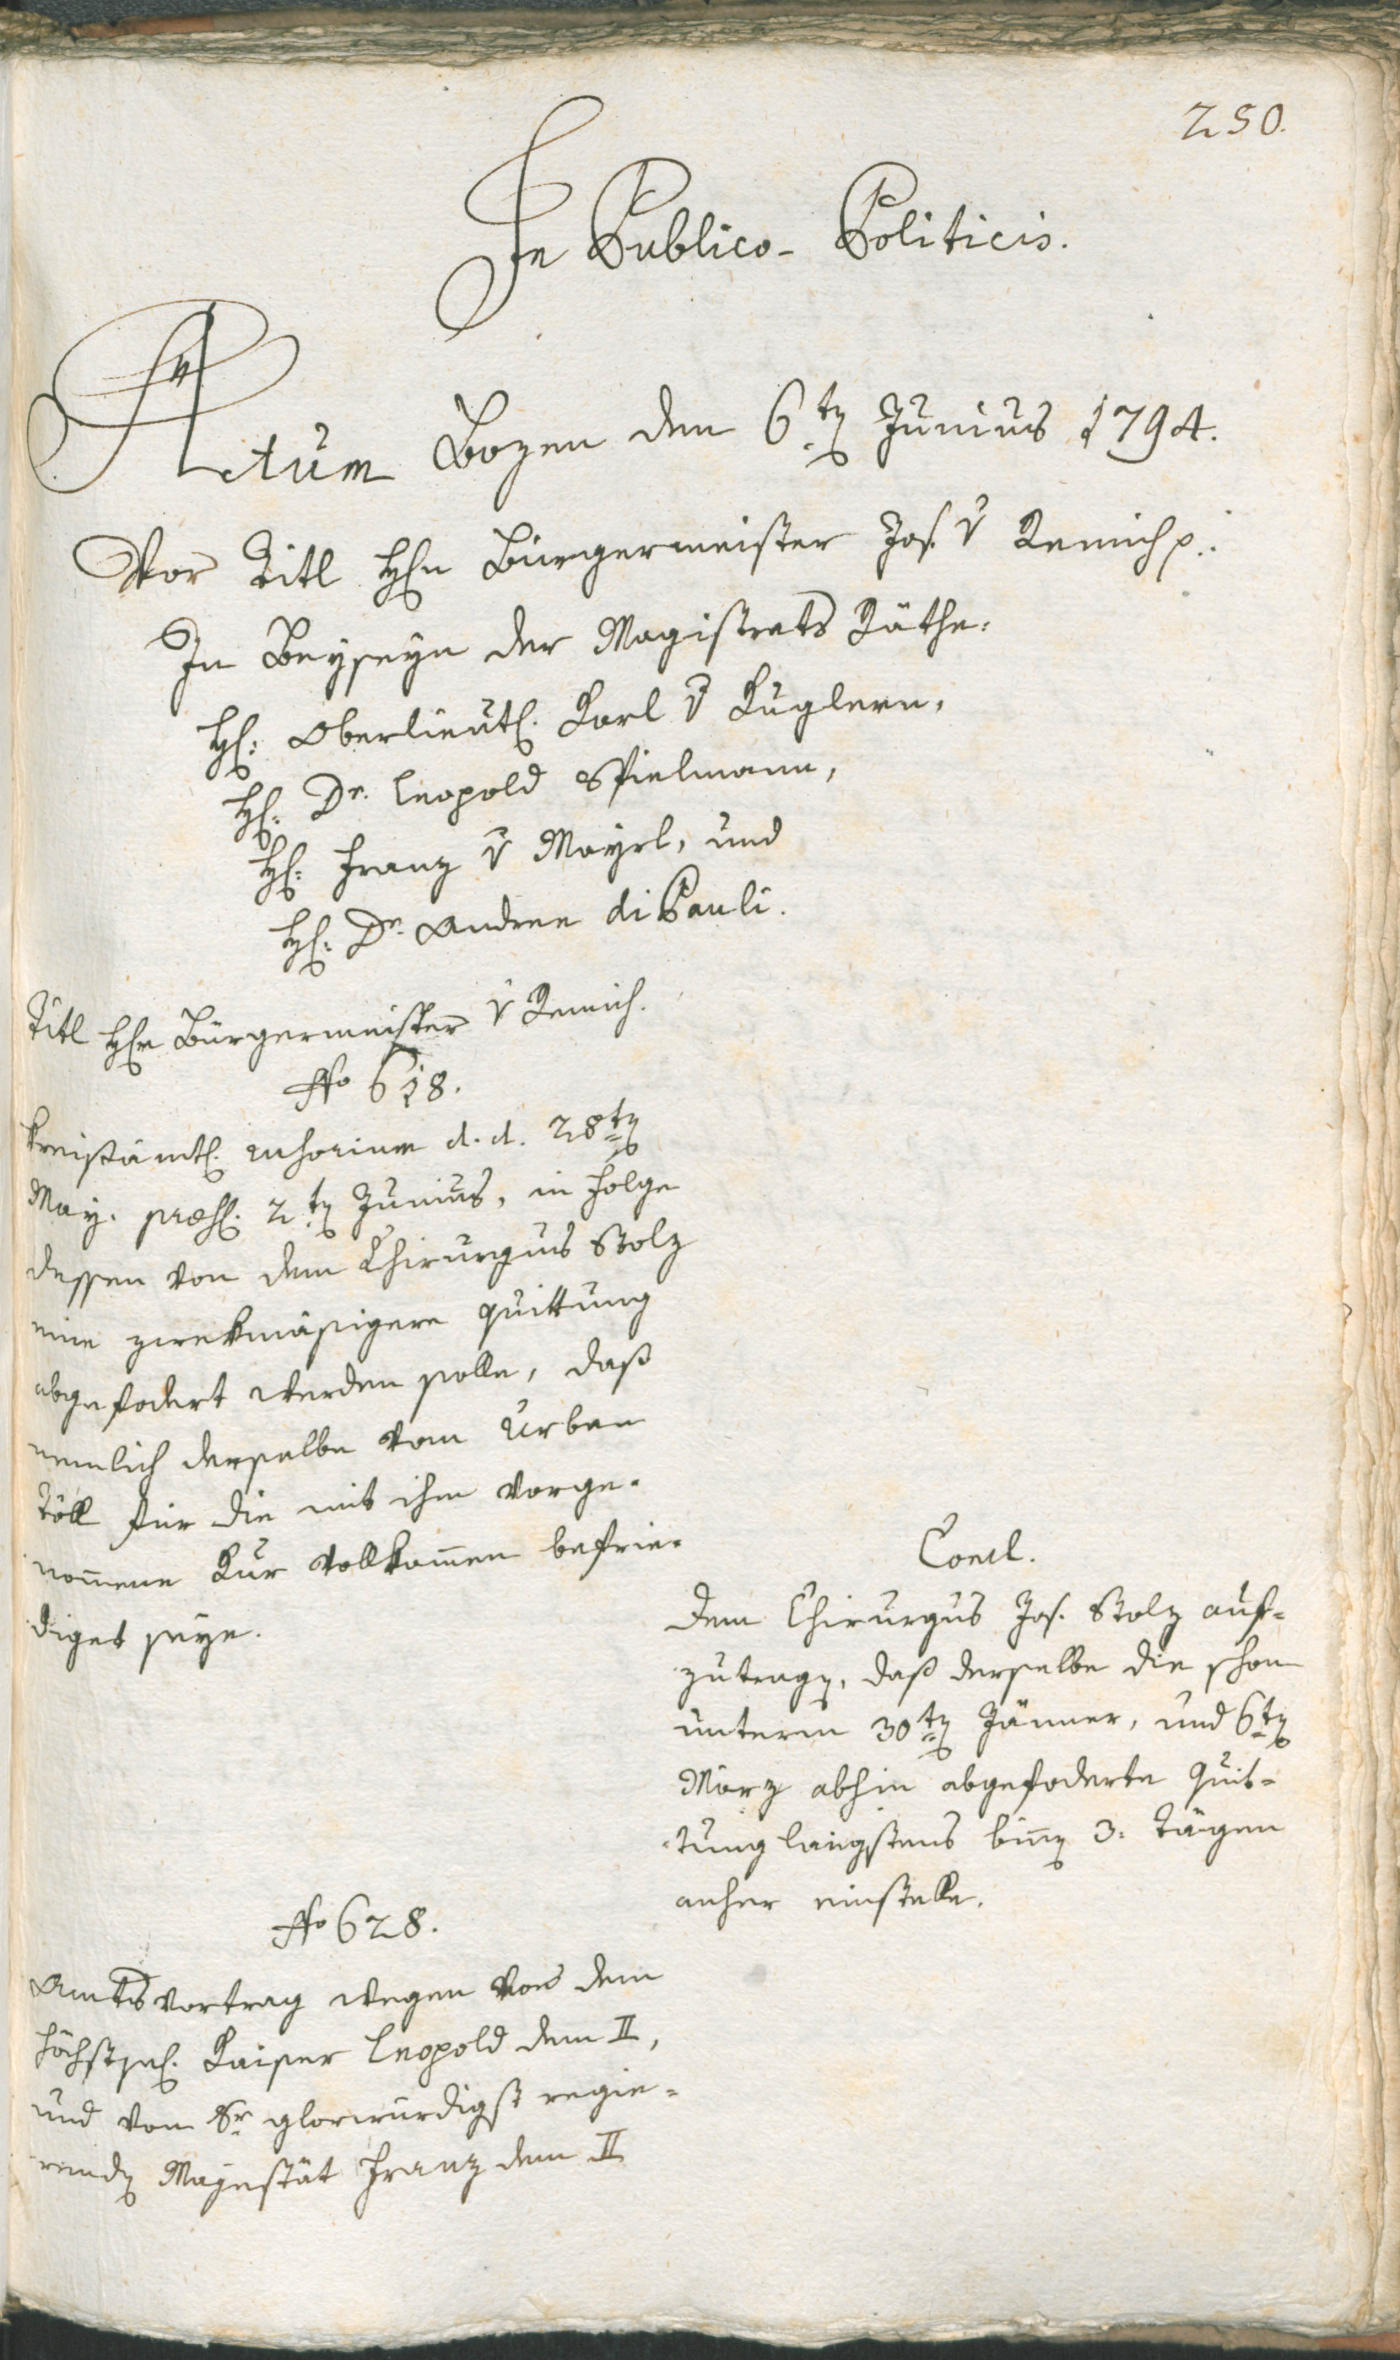 250.
In Publico- Politicis.
Actum Bozen den 6ten Junius 1794.
Vor Titl Hℓn Bürgermeister Jos. v Remich p.
In Beyseyn der Magistrats Räthe.
Hℓ: Oberlieutℓ. Karl v Kuglern,
Hℓ: Dr. Leopold Spielmann,
Hℓ: Franz v Mayrl, und
Hℓ: Dr. Andree di Pauli.
Titl Hℓn Bürgermeister v Remich.
No 618.
Kreisämtl. d. d. 28ten
May. præs. 2ten Junius, in Folge
dessen von dem Chirurgus Stolz
eine zwekmäsigere Quittung
abgefodert werden solle, daß
nemlich derselbe vom Urban
Töll für die mit ihm vorge-
nom̄ene Kur vollkom̄en befrie-
diget seye.
Concl.
Dem Chirurgus Jos. Stolz auf-
zutragen, daß derselbe die schon
unterm 30ten Jänner, und 6ten
März abhin abgefoderte Quit-
tung längstens binen 3. Tägen
anher einstelle.
No 628.
Amtsvortrag wegen von dem
höchstsel. Kaiser Leopold dem II,
und von Sr glorwürdigst regie-
renden Majestät Franz dem II